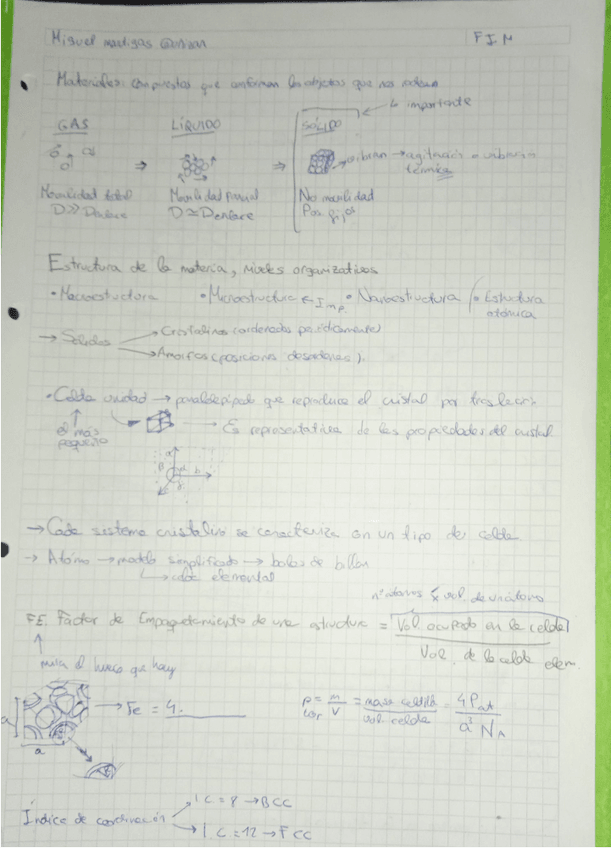 Miguel F I M
Materiales: compuestos que conforman los objetos que nos rodean
lo importante
GAS LÍQUIDO SÓLIDO
⇒ ⇒ vibran → agitación o vibración
térmica
Movilidad total Movilidad Parcial No movilidad
D ≫ Denlace D ≃ Denlace Pos fijas
Estructura de la materia, niveles organizativos
• Macroestructura • Microestructura ← Imp. • Nanoestructura / • Estructura
atómica
→ Sólidos → Cristalinos (ordenados periódicamente)
→ Amorfos (posiciones desordenes).
• Celda unidad → paralelepípedo que reproduce el cristal por traslación
el más
pequeño → Es representativa de las propiedades del cristal
a β α b γ c
→ Cada sistema cristalino se caracteriza con un tipo de celda
→ Atomo → modelo simplificado → bolas de billar
celda elemental
nº átomos x vol. de un átomo
FE. Factor de Empaquetamiento de una estructura = Vol ocupado en la celda
Vol. de la celda elem.
mira el hueco que hay
a → Fe = 4. ρ = m/V = masa celdilla / vol. celda = 4 Pat / a³ NA
a
Índice de coordinación → I C = 8 → BCC
→ I C = 12 → F CC